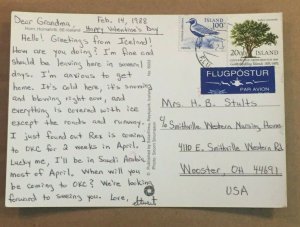 Dear Grandma, Feb. 14, 1988
Happy Valentine's Day
Hello! Greetings from Iceland!
How are you doing? I'm fine and
should be leaving here in several
days. I'm anxious to get
home. It's cold here, it's snowing
and blowing right now, and
everything is covered with ice
except the roads and runway.
I just found out Res is coming
to OKC for 2 weeks in April.
Lucky me, I'll be in Saudi Arabia
most of April. When will you
be coming to OKC? We're looking
forward to seeing you. Love,
Stuart
ÍSLAND
100
20
ÍSLAND
FLUGPÓSTUR
PAR AVION
Mrs. H. B. Stults
c/o Smithville Western Nursing Home
4110 E. Smithville Western Rd
Wooster, OH 44691
USA